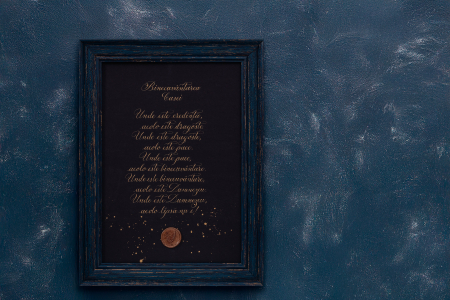 Binecuvântarea
Casei
Unde este credință,
acolo este dragoste
Unde este dragoste,
acolo este pace
Unde este pace,
acolo este binecuvântare
Unde este binecuvântare,
acolo este Dumnezeu
Unde este Dumnezeu,
acolo lipsă nu e!